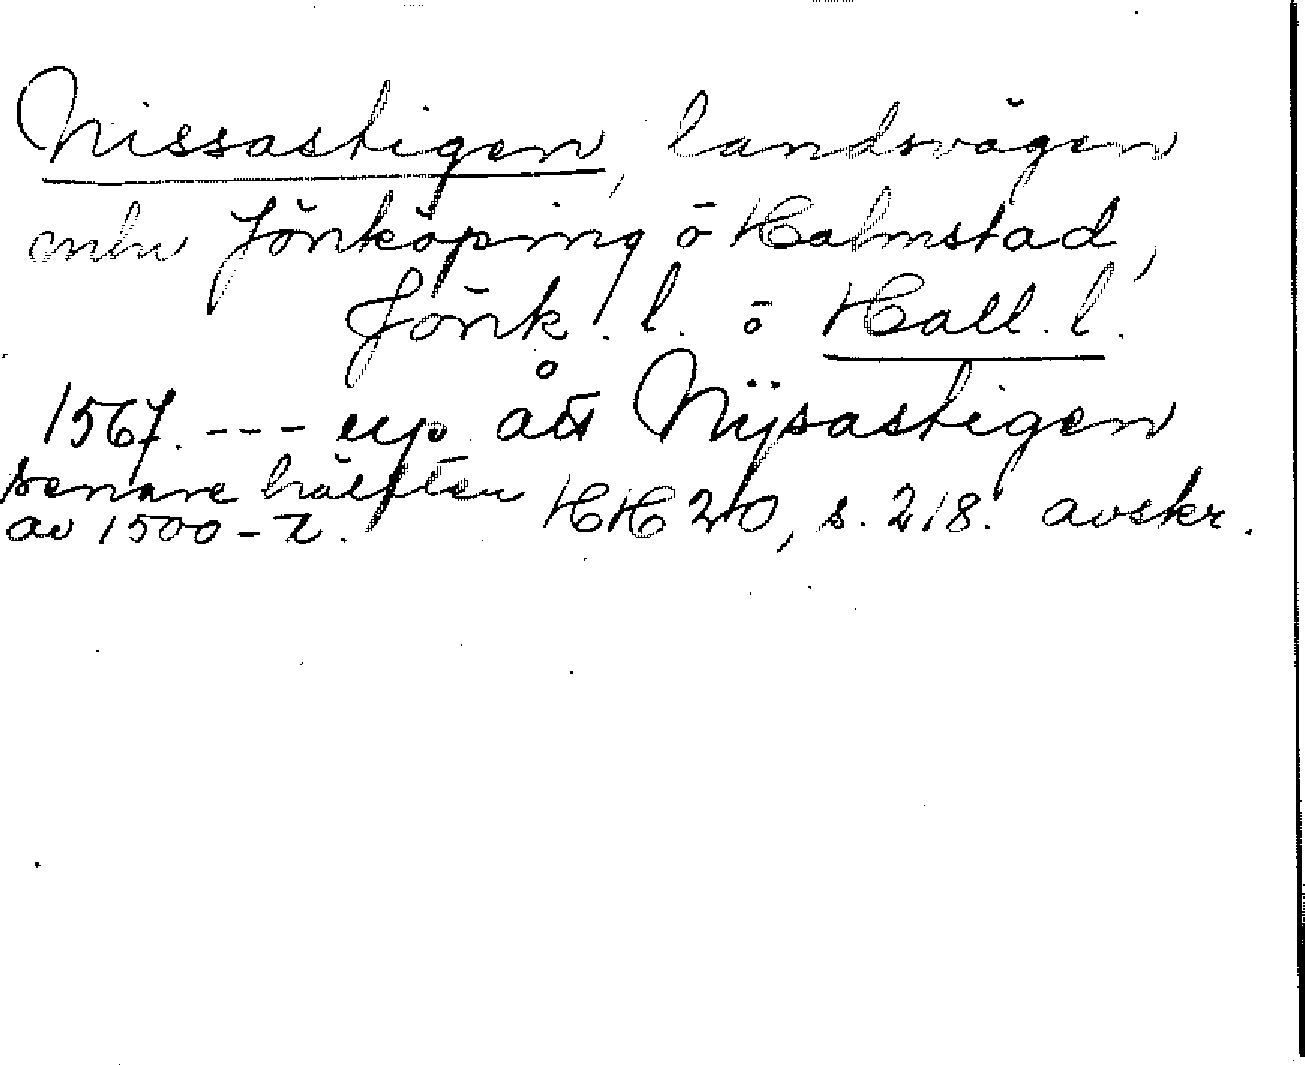 Nissastigen, landsvägen
mlw Jönköping o Halmstad,
Jönk. l. o Hall. l.
1567. --- up ått Nÿsastigen
senare hälften HH 20, s. 218. avskr.
av 1500-t.